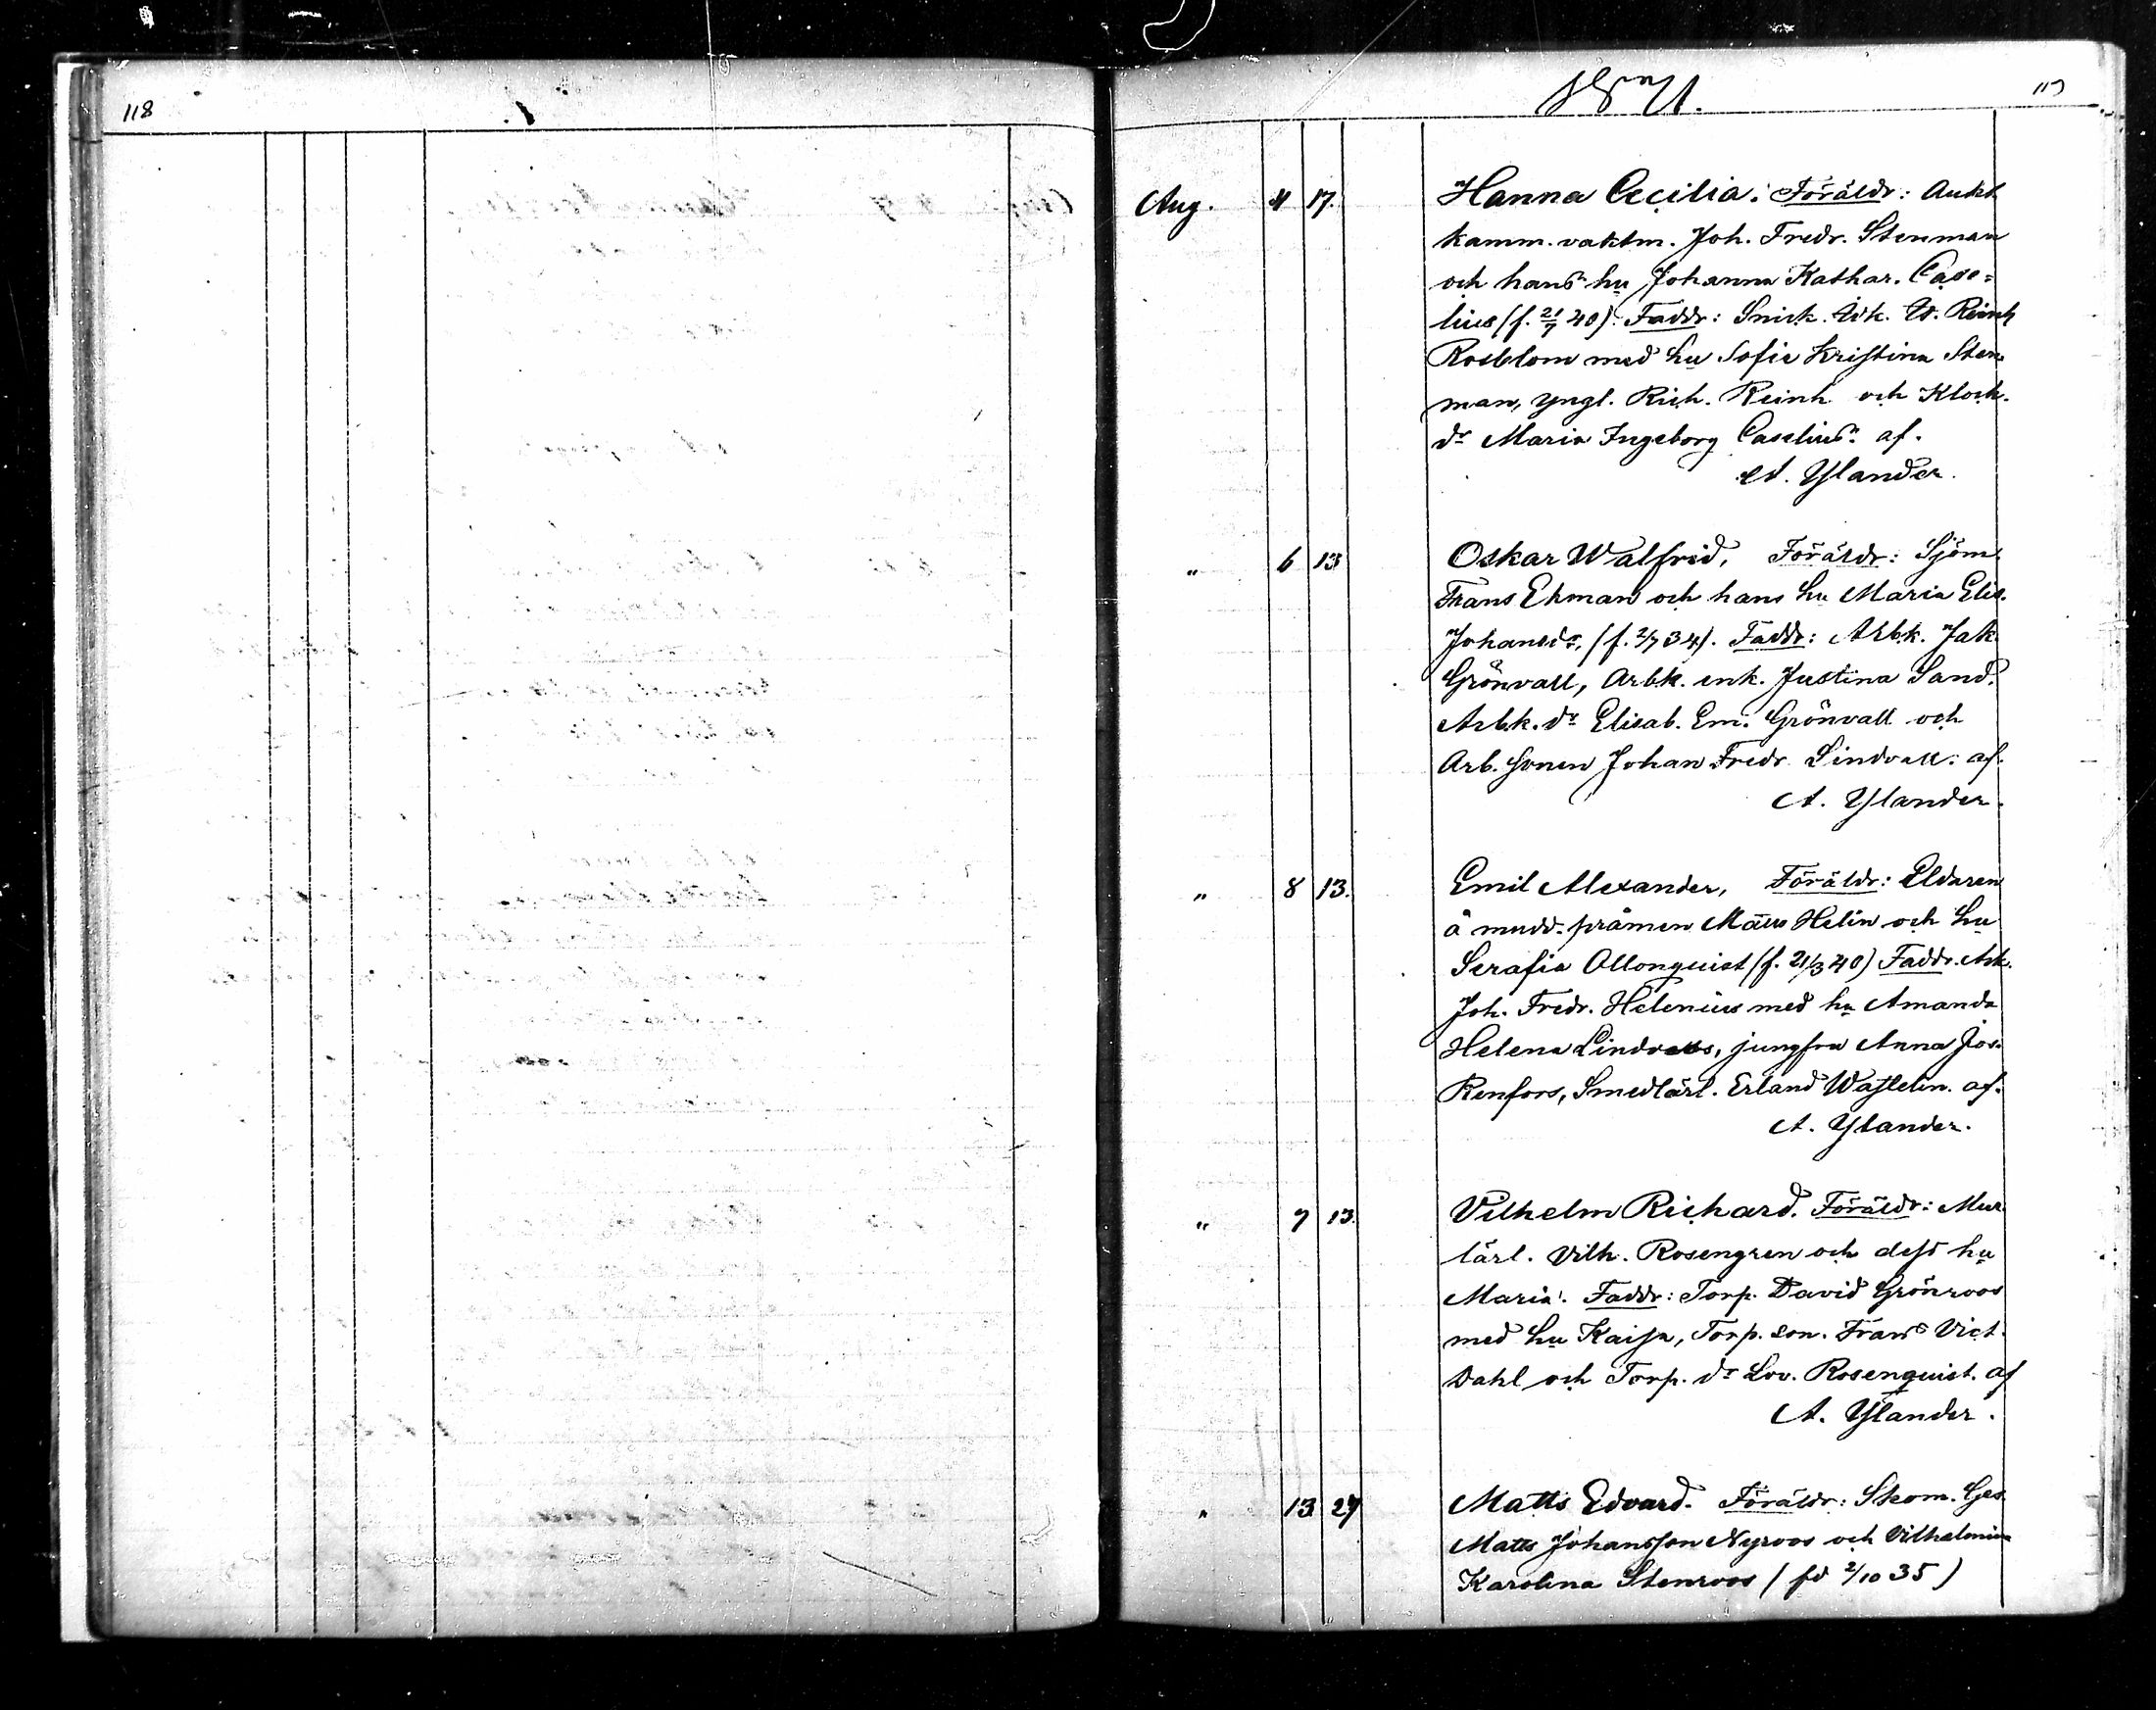 118
1871.
Aug. 4 17. Hanna Cecilia. Föräldr: Aukt.
kamm. vaktm. Joh. Fredr. Stenman
och hans hu Johanna Kathar. Case=
lius (f. 21/7 40). Faddr: Snick. Reinh
Rosblom med hu Sofia Kristina Sten
man, yngl. Rich. Reinh och Klock.
dr Maria Ingeborg Caselius. af.
A. Ylander.
„ 6 13 Oskar Walfrid, Föräldr: Sjöm.
Frans Ekman och hans hu Maria Elis.
Johansdr, (f. 2/7 34). Faddr: Arbk. Jak
Grönvall, Arbk. enk. Justina Sand.
Arbk. dr Elisab. Em. Grönvall och
Arb. sonen Johan Fredr Lindvall: af.
A. Ylander.
„ 8 13. Emil Alexander, Föräldr: Eldaren
å mudd. pråmen Matts Helin och hu
Serafia Ollonquist (f. 21/3 40) Faddr. Ark.
Joh. Fredr. Helenius med hu Amanda
Helena jungfru Anna Jos.
Renfors, Smedlärl. Erland Wastelin. af.
A. Ylander.
„ 7 13. Vilhelm Richard. Föräldr: Mur
lärl. Vilh. Rosengren och dess hu
Maria. Faddr: Torp. David Grönroos
med hu Kaisa, Torp. son. Frans Vict.
Dahl och Torp. dr Lov. Rosenquist. af
A. Ylander.
„ 13 27 Matts Edvard. Föräldr: Skom. Ges.
Matts Johansson Nyroos och Vilhelmina
Karolina Stenroos (fd 2/10 35)